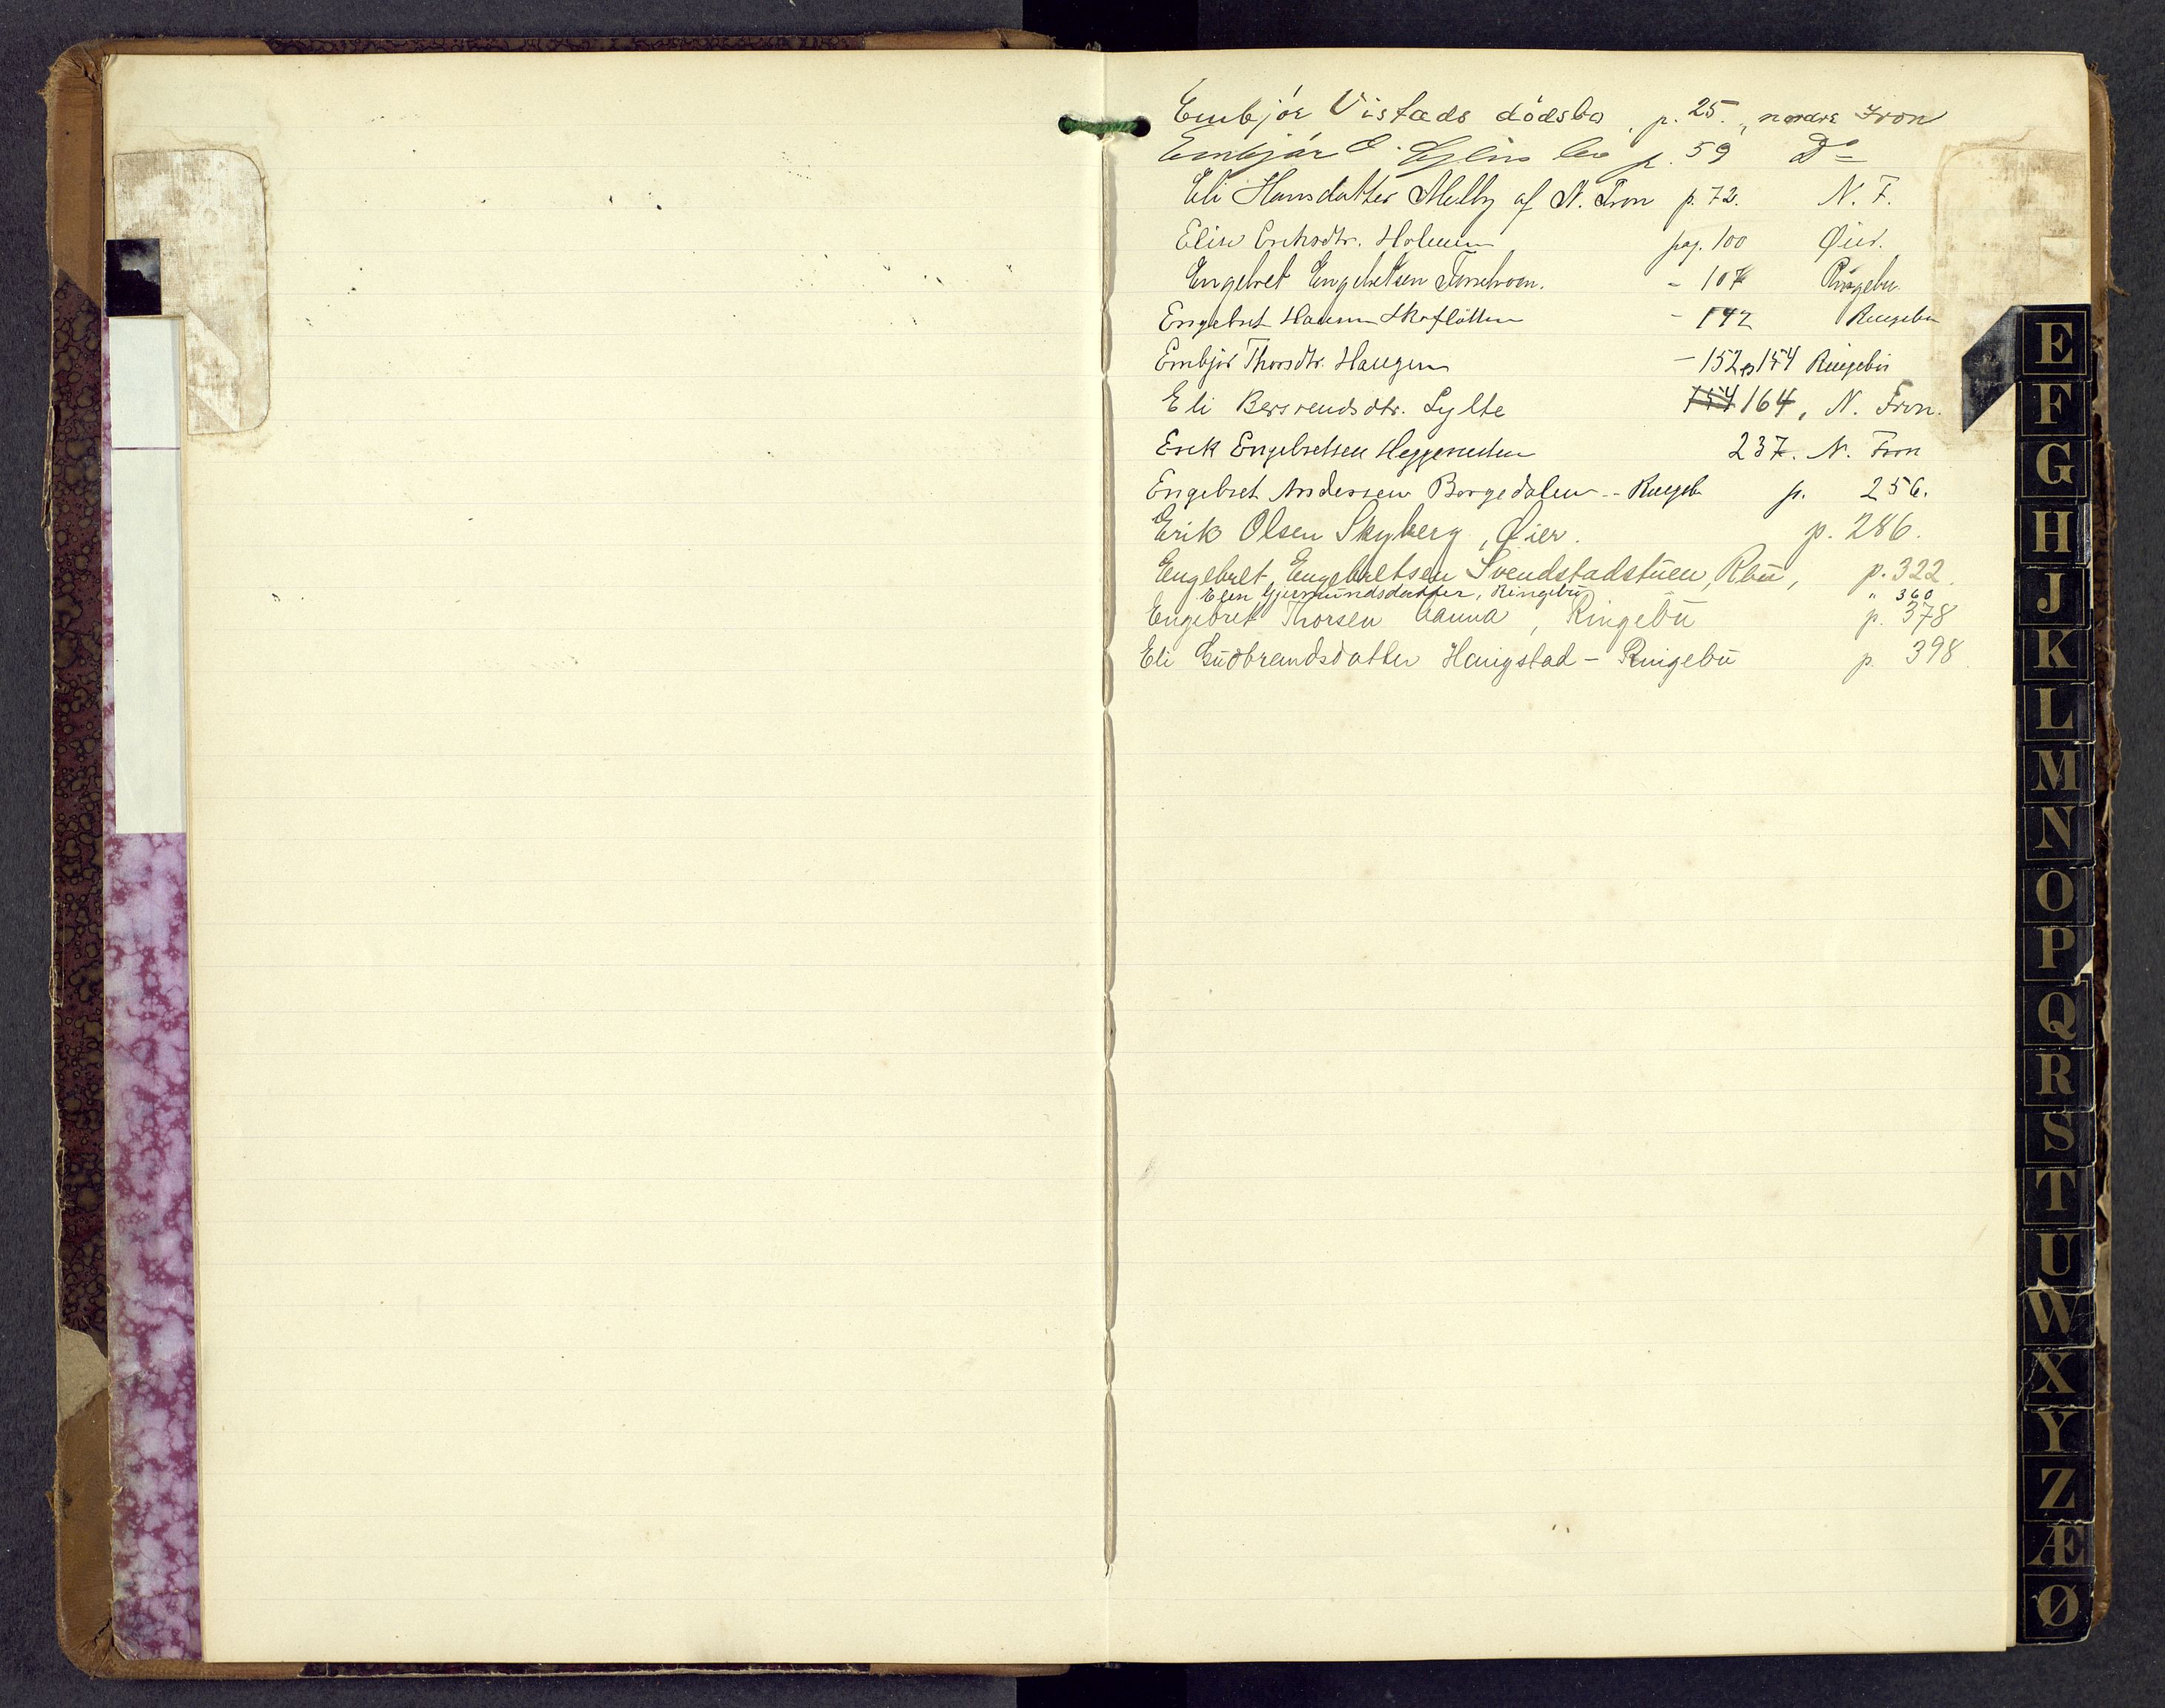 Embjør Vistads dødsbo, p. 25., nordre Fron
Embjør O. bo p. 59 Do
Eli Hansdatter Melby af N. Fron p. 72. N. F.
Elise Eriksdtr. Holmen pag. 100 Øier.
Engebret Engebretsen - 107 Ringebu.
Engebret Hansen Skaflötten - 142 Ringebu
Embjør Thorsdtr. Haugen - 152 154 Ringebu
Eli Bersvendsdtr. Sylte 154 164, N. Fron.
Erik Engebretsen 237. N. Fron
Engebret Andersen Borgedalen - Ringeb p. 256.
Erik Olsen Skyberg, Øier. p. 286.
Engebret Engebretsen Svendstadstuen, Rbu, p. 322.
Elen Gjermundsdatter, Ringebu " 360
Engebret Thorsen Aanna, Ringebu p. 378
Eli Gudbrandsdatter Haugstad - Ringebu p. 398.
E
F
G
H
J
K
L
M
N
O
P
Q
R
S
T
U
W
X
Y
Z
Æ
Ø